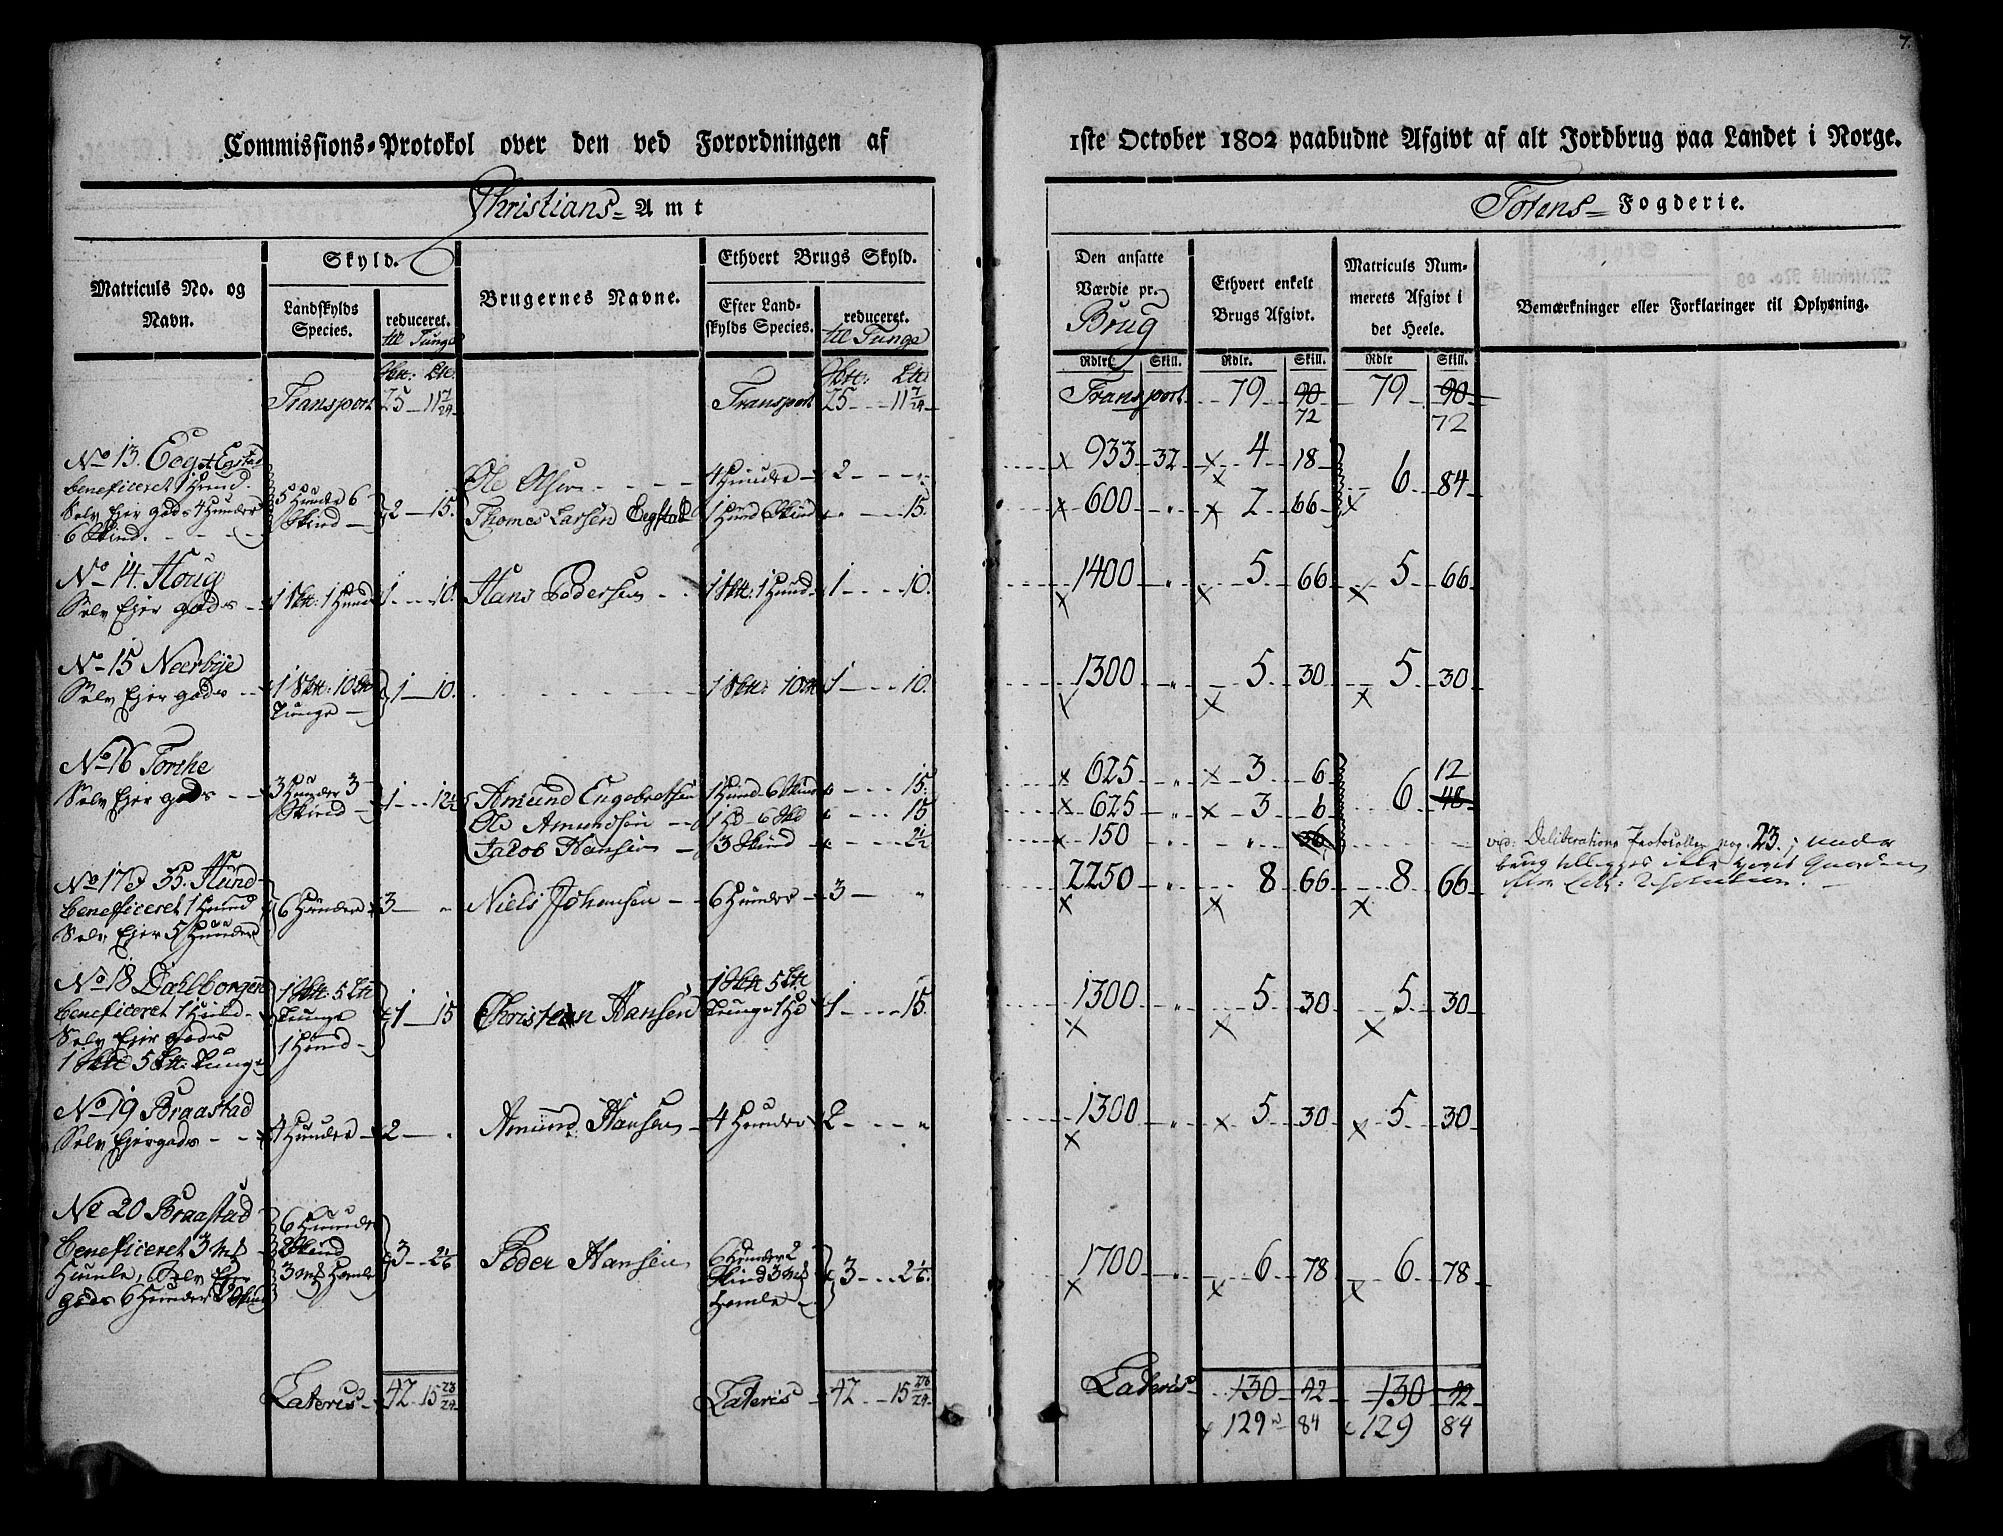 7.
Commissions-Protokol over den ved Forordningen af
1ste October 1802 paabudne Afgivt af alt Jordbrug paa Landet i Norge.
Christians- Amt
Totens- Fogderie.
Matriculs No. og Navn.
Skyld.
Landskylds Species.
reduceret. til Tunge
Brugernes Navne.
Ethvert Brugs Skyld.
Efter Landskylds Species.
reduceret. til Tunge
Den ansatte Værdie pr. Brug
Ethvert enkelt Brugs Afgivt.
Matriculs Nummerets Afgivt i det Heele.
Bemærkninger eller Forklaringer til Oplysning.
Rdlr. Skill. Rdlr. Skill. Rdlr Skill.
Transport 25 - 11 7/24 Transport 25 - 11 7/24 Transport 79 90 79 90
72 72
No 13. Eeg
beneficeret 1 Hund Ole Olsen 4 Hunder 2 - " 933 32 4 18
Selv Ejer gods 4 Hunder 5 Hunder 6 6 84
6 Skind. Skind 2 - 15. Thomas Larsen Eegstad 1 Hund 6 Skind " - 15. 600 " 2 66
No 14. Houg
Selv Ejer gods 1 Hund 1 - 10. Hans Pedersen 1 Hund 1 - 10. 1400 " 5 66 5 66
No 15 Neerbye
Selv Ejer gods 1 10 Tunge 1 - 10. 1 10 1 - 10. 1300 " 5 30 5 30
No 16 Forche
Selv Ejer gods 3 Hunder 3 Skind 1 - 12½ Amund Engebretsen 1 Hund 6 Skind " - 15. 625 " 3 6 6 12
Ole Amundsen 1 6 " - 15 625 " 3 6 48
Jacob Hansen 3 Skind " - 2½ 150 " " 36
vid: Deliberations Protocollen pag. 23;
No 17 & 35. Hund
beneficeret 1 Hund 6 Hunder 3 - " Niels Johansen 6 Hunder 3 - " 2250 " 8 66 8 66
Selv Ejer 5 Hunder
No 18 Dahlborgen
beneficeret 1 Hund 1 5 Tunge 1 Hund 1 - 15 Christian Hansen 1 5 Tunge 1 1 - 15. 1300 " 5 30 5 30
Selv Ejer gods
1 5 Tunge
No 19 Braastad
Selv Ejer gods 4 Hunder 2 - . Amund Hansen 4 Hunder 2 - " 1300 " 5 30 5 30
No 20 Braastad
beneficeret 3 6 Hunder 2 Skind 3 Homle 3 - 2 1/6 Peder Hansen 6 Hunder 2 Skind 3 Homle 3 - 2 1/6. 1700 " 6 78 6 78
Humle, Selv Ejer
gods 6 Hunder 2 Skind
Lateris 42 15 23/24 Lateris 42 - 15 23/24 Lateris 130 42 130 42
129 84 129 84